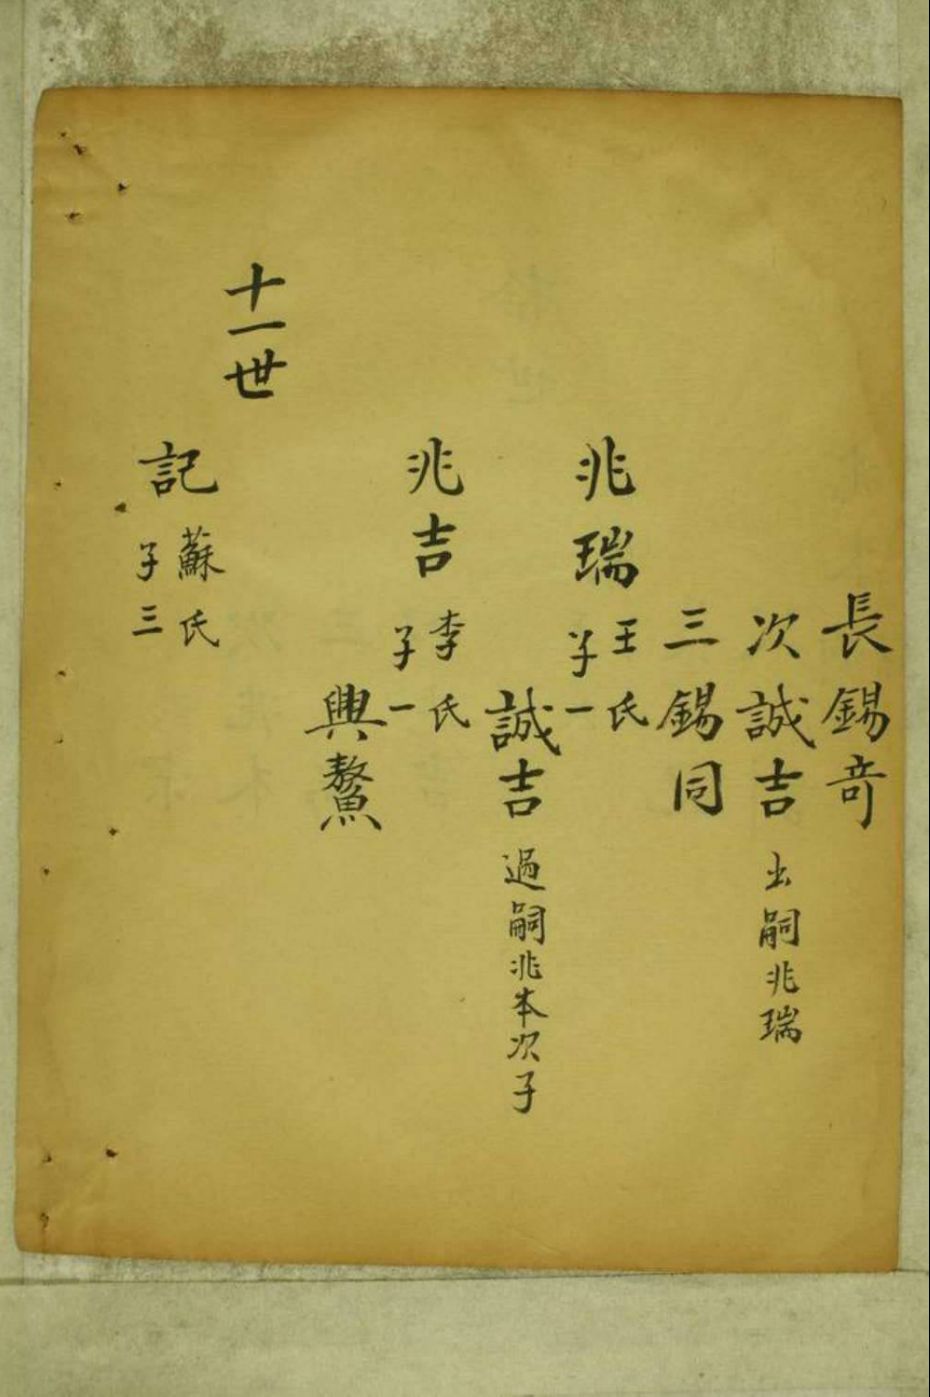 長錫奇
次誠吉 出嗣兆瑞
三錫同
兆瑞 王氏 子一
誠吉 過嗣兆本次子
兆吉 李氏 子一
興鰲
十一世
記 蘇氏 子三